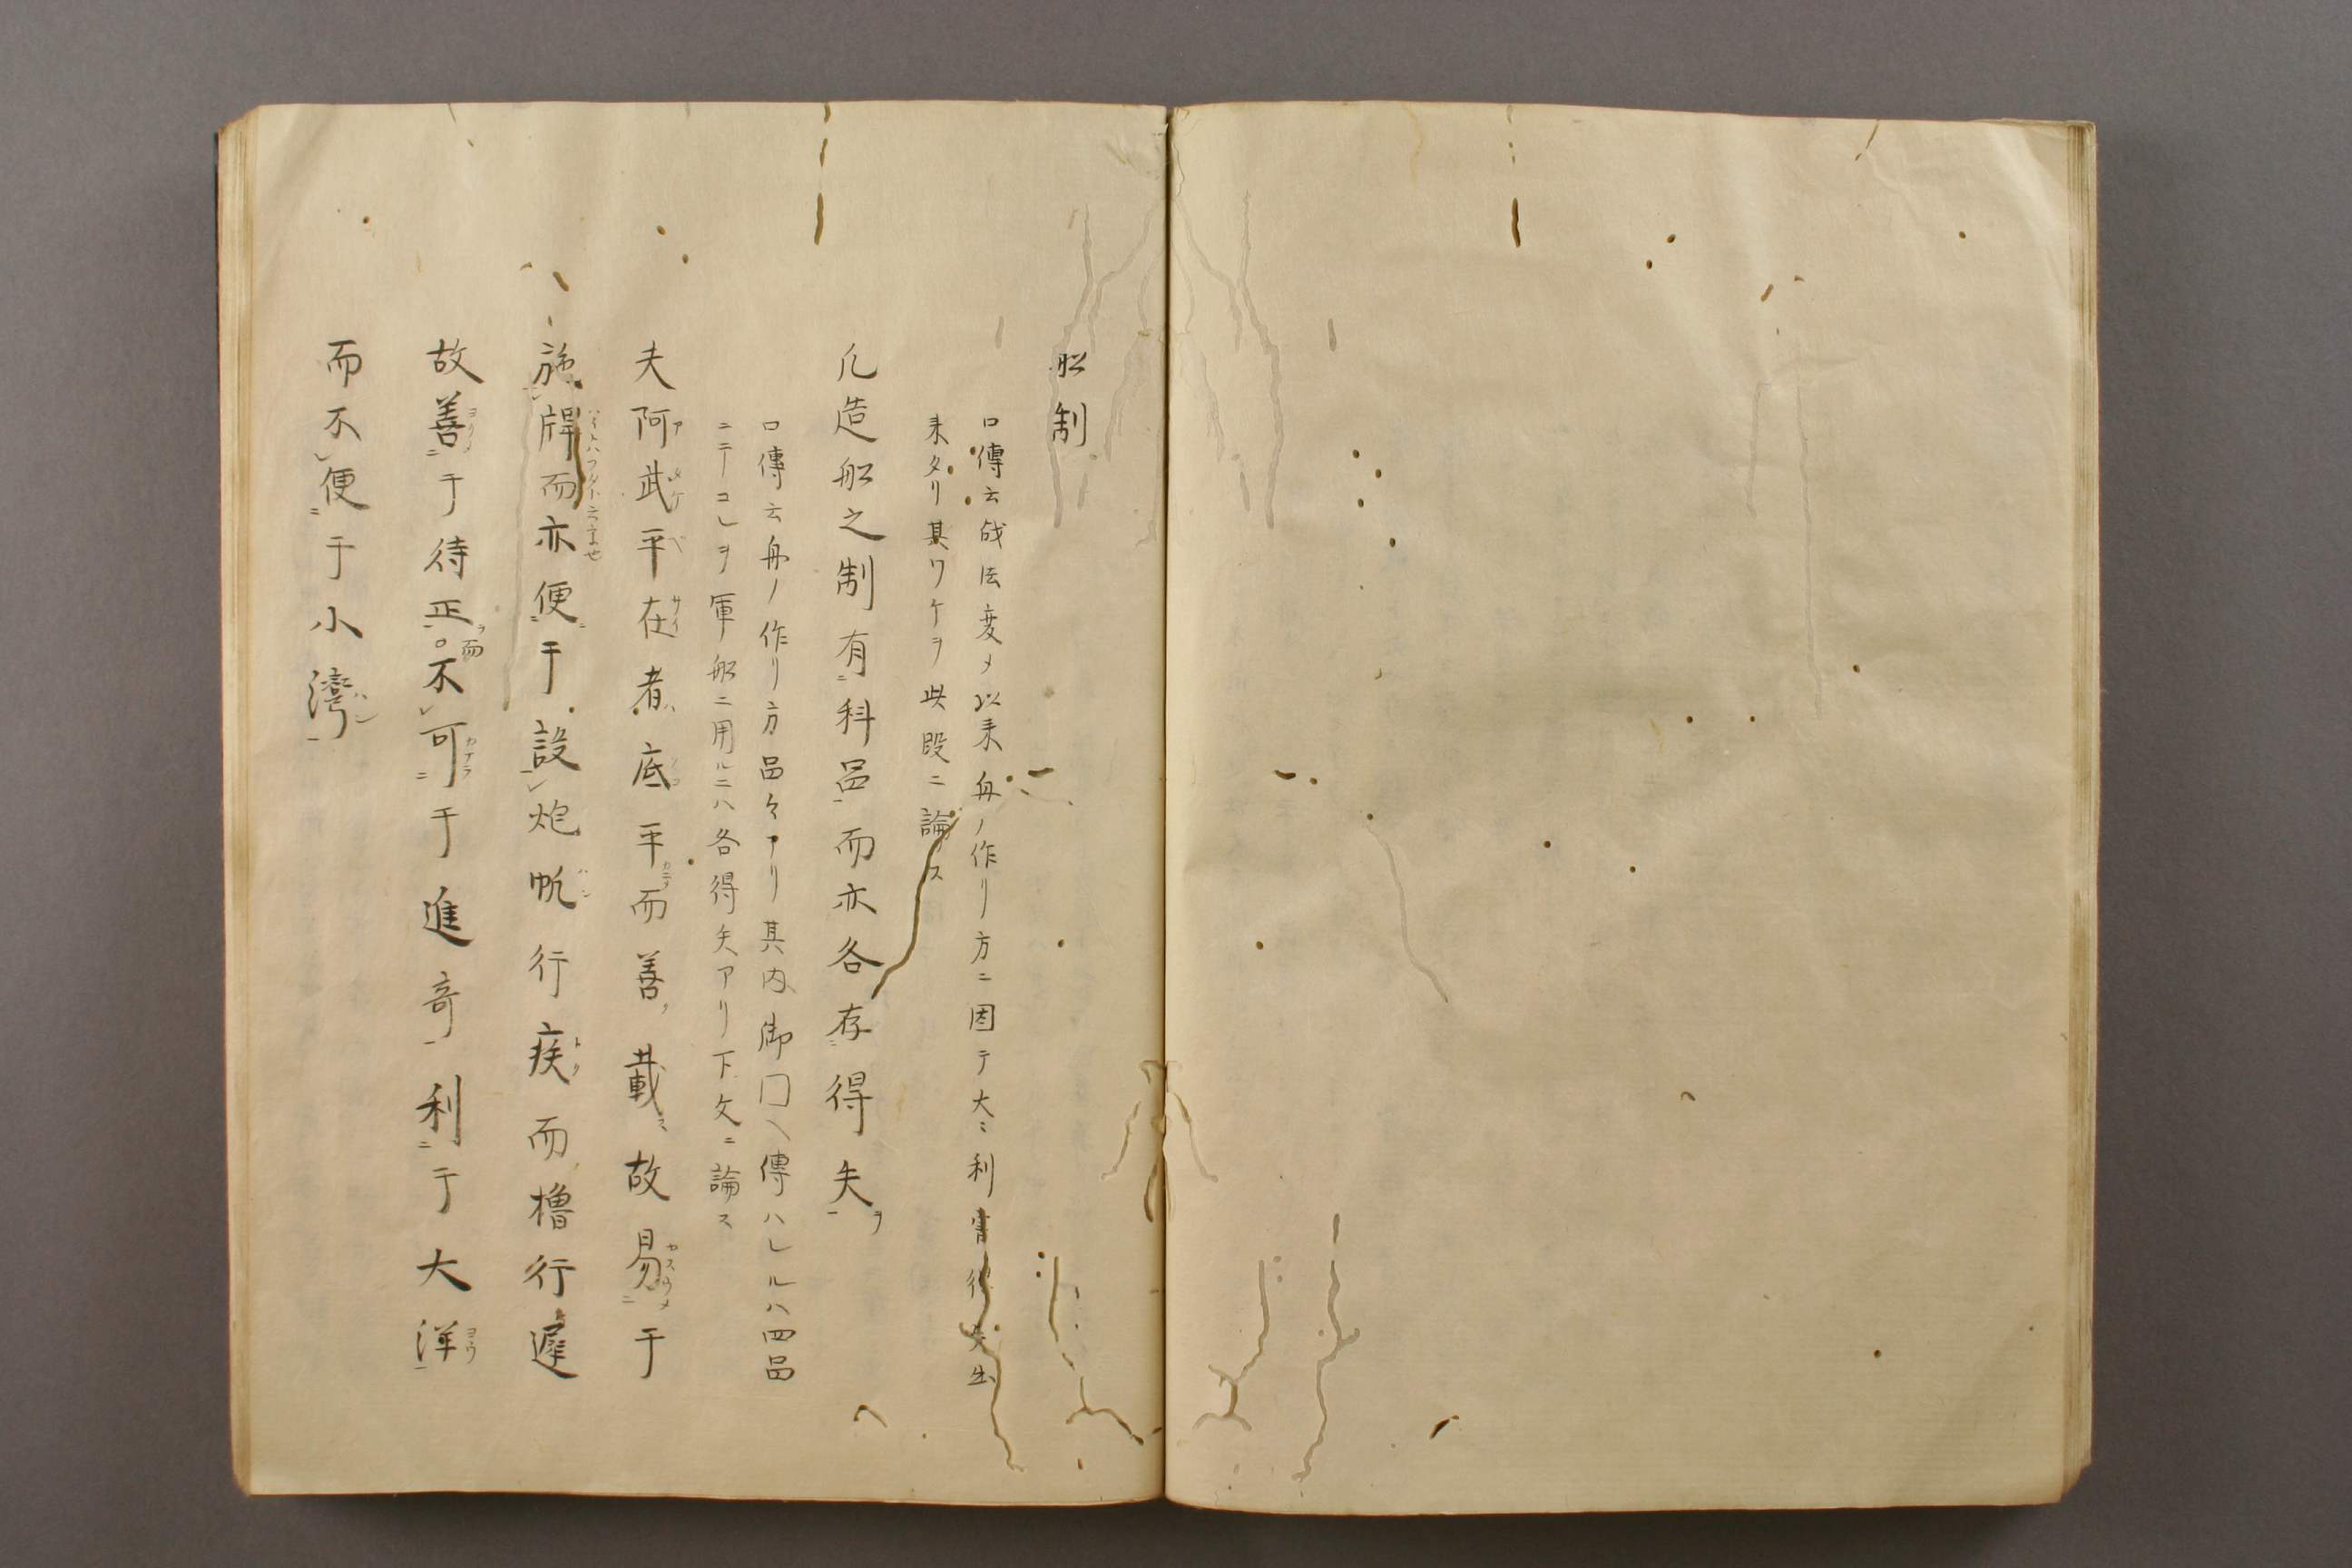 舩制
口傳云战法変メ以来舟ノ作リ方ニ因テ大ニ利害得失出
来タリ其ワケヲ此段ニ論ス
凡造舩之制有科品而亦各存得失ヲ
口傳云舟ノ作リ方品々アリ其内御門ヘ傳ハレルハ四品
ニテコレヲ軍舩ニ用ルニハ各得失アリ下文ニ論ス
夫阿武平在者ハ底平而善ク載ス故易于
施牌而亦便于設炮帆行疾而櫓行遲
故善于待正而不可于進奇利于大洋
而不便于小灣